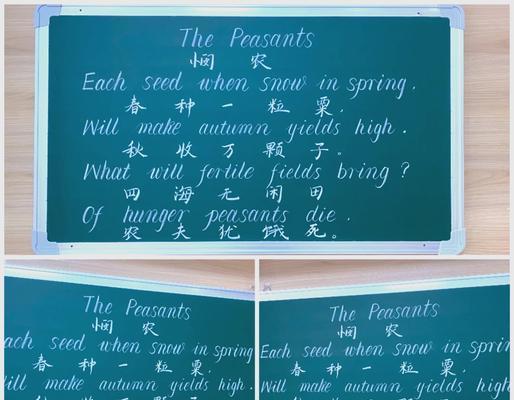 The Peasants
悯 农
Each seed when snow in spring .
春 种 一 粒 粟 .
Will make autumn yields high .
秋 收 万 颗 子 。
What will fertile fields bring ?
四 海 无 闲 田
Of hunger peasants die .
农 夫 犹 饿 死 。
The Peasants
悯 农
ach seed when snow in spring
春 种 一 粒 粟 .
ill make autumn yields high .
The Peasants
悯 农
Each seed when snow in sprin
春 种 一 粒 粟 .
Will make autumn yields